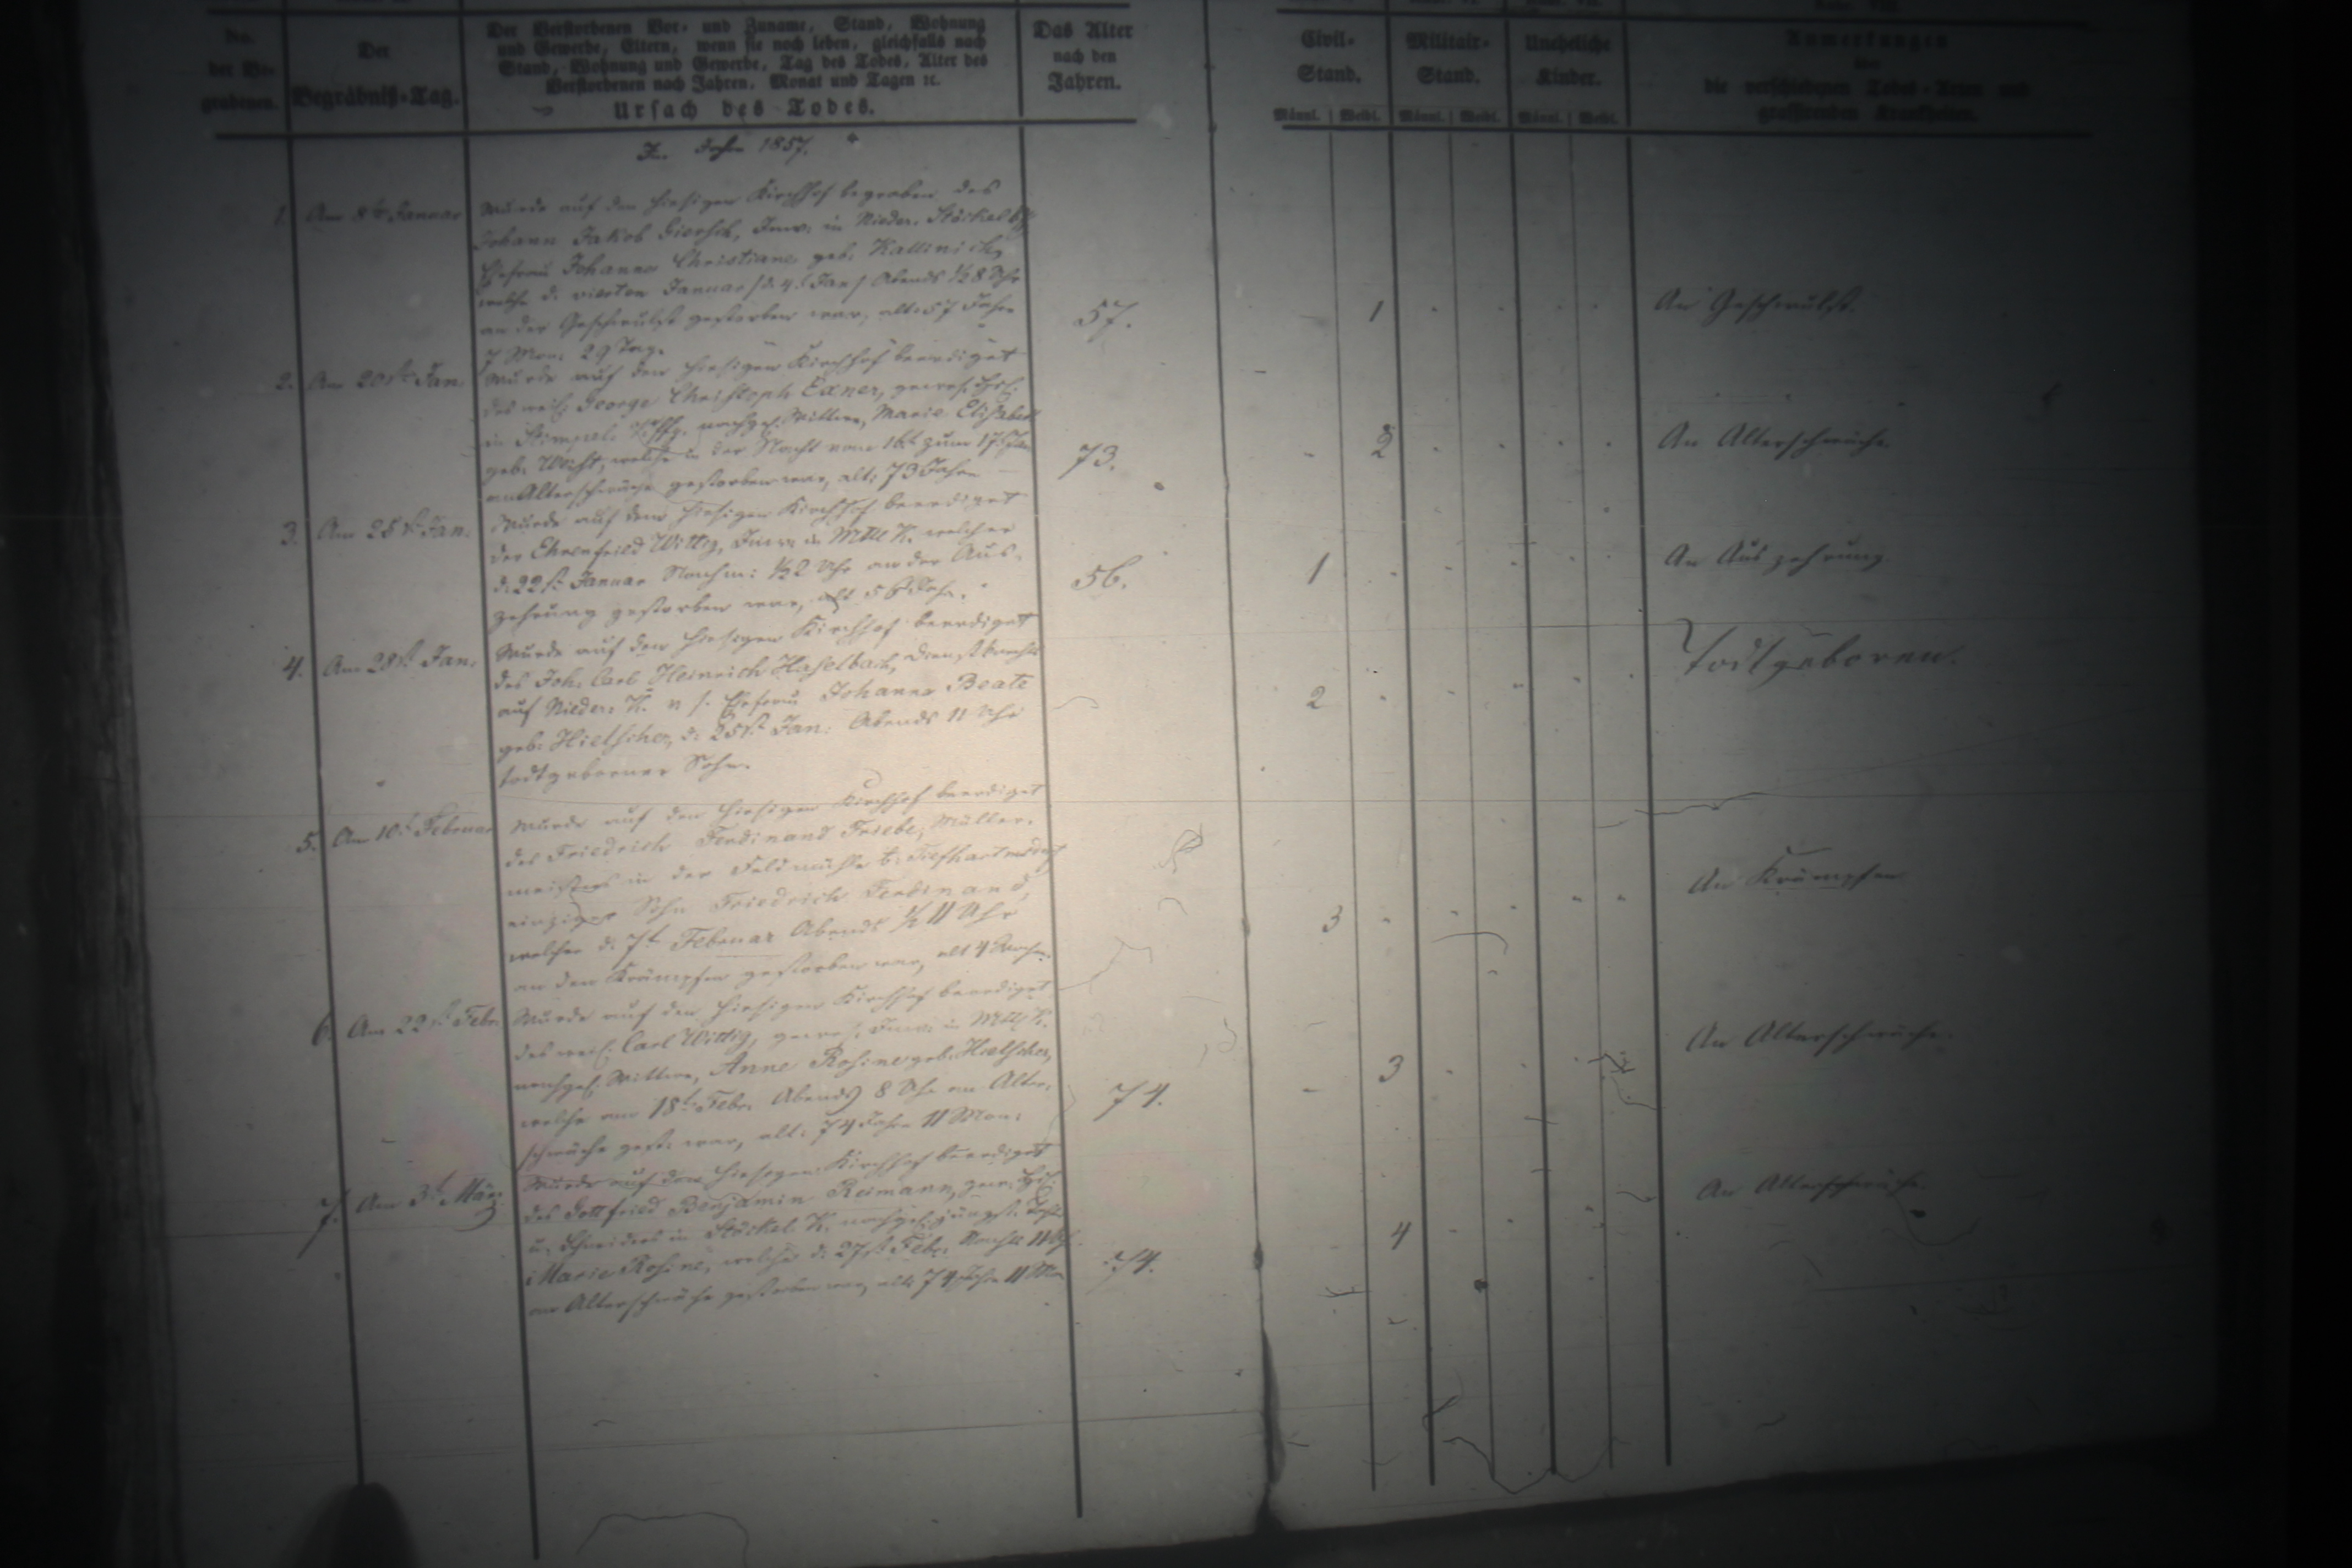 No.
der Be-
grabenen.
Der
Begräbniß-Tag.
Der Verstorbenen Vor- und Zuname, Stand, Wohnung
und Gewerbe, Eltern, wenn sie noch leben, gleichfalls nach
Stand, Wohnung und Gewerbe, Tag des Todes, Alter des
Verstorbenen nach Jahren, Monat und Tagen ꝛc.
Ursach des Todes.
Das Alter
nach den
Jahren.
Civil-
Stand.
Militair-
Stand.
Uneheliche
Kinder.
Anmerkungen
über
die verschiedenen Todes-Arten und
grassirenden Krankheiten.
Männl. Weibl. Männl. Weibl. Männl. Weibl.
Im Jahre 1857.
1. Am 8t Januar Wurde auf dem hiesigen Kirchhof begraben des
Johann Jakob Giersch, Inw: in Nieder. Stöckel
Ehefrau Johanne Christiane geb: Kallinich,
welche d. vierten Januar /d. 4t Jan/ Abends ½ 8 Uhr
an der Geschwulst gestorben war, alt: 57 Jahre 57. 1 An Geschwulst.
7 Mon: 29 Tage
2. Am 20st Jan. Wurde auf dem hiesigen Kirchhof beerdiget
des weil: George Christoph Exner, gewes.
in nachgel. Wittwe, Marie Elisabeth
geb: welche in der Nacht vom 16t zum 17t Jan
an Altersschwäche gestorben war, alt: 73 Jahre 73. 2 An Altersschwäche
3. Am 25st Jan. Wurde auf dem hiesigen Kirchhof beerdiget
der Ehrenfried Wittig, Inw: in Mttl K. welcher
d. 22st Januar Nachm: ½ 2 Uhr an der Aus-
zehrung gestorben war, alt 56 Jahr. 56. 1 An Auszehrung
4. Am 28st Jan. Wurde auf dem hiesigen Kirchhof beerdiget
des Joh. Carl Heinrich Haselbach, Dienstknechts
auf Nieder. K. u s. Ehefrau Johanne Beate
geb: Hielscher, d. 25st Jan: Abends 11 Uhr
todtgeborner Sohn. 2 Todtgeboren.
5. Am 10t Februar Wurde auf dem hiesigen Kirchhof beerdiget
des Friedrich Ferdinand Friebe, Müller-
meisters in der Feldmühle b: Tiefhartmsdorf
einziger Sohn Friedrich Ferdinand,
welcher d. 7t Februar Abends ½ 11 Uhr
an den Krämpfen gestorben war, alt 4 Wochen. 3 An Krämpfen
6. Am 22st Febr. Wurde auf dem hiesigen Kirchhof beerdiget
des weil: Carl Wittig, gewes. Inw: in Mttl K.
nachgel. Wittwe, Anne Rosine geb: Hielscher,
welche am 18t Febr. Abends 8 Uhr an Alters-
schwäche gest. war, alt: 74 Jahre 11 Mon: 74. 3 An Altersschwäche.
7. Am 3t März Wurde auf dem hiesigen Kirchhof beerdiget
des Gottfried Benjamin Reimann, gew:
u. Schneiders in Stöckel K. nachgel. jüngst. Tocht
Marie Rosine, welche d. 27st Febr. Nachts 11 Uhr
an Altersschwäche gestorben war, alt: 74 Jahre 11 Mon 74. 4 An Altersschwäche.